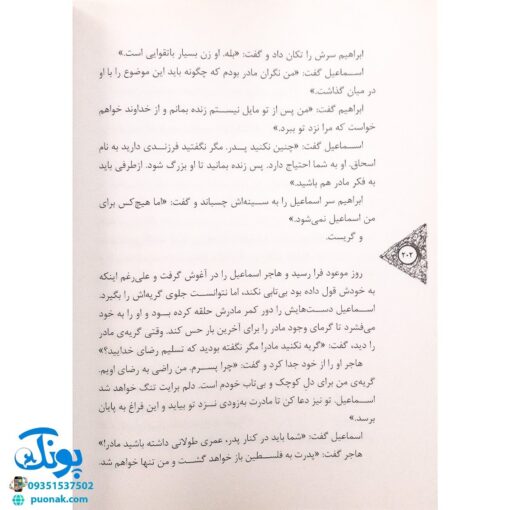 ابراهیم سرش را تکان داد و گفت: «بله. او زن بسیار باتقوایی است.»
اسماعیل گفت: «من نگران مادر بودم که چگونه باید این موضوع را با او
در میان گذاشت.»
ابراهیم گفت: «من پس از تو مایل نیستم زنده بمانم و از خداوند خواهم
خواست که مرا نزد تو ببرد.»
اسماعیل گفت: «چنین نکنید پدر. مگر نگفتید فرزندی دارید به نام
اسحاق. او به شما احتیاج دارد. پس زنده بمانید تا او بزرگ شود. ازطرفی باید
به فکر مادر هم باشید.»
ابراهیم سر اسماعیل را به سینه‌اش چسباند و گفت: «اما هیچ‌کس برای
من اسماعیل نمی‌شود.»
و گریست.
۲۰۲
روز موعود فرا رسید و هاجر اسماعیل را در آغوش گرفت و علی‌رغم اینکه
به خودش قول داده بود بی‌تابی نکند، اما نتوانست جلوی گریه‌اش را بگیرد.
اسماعیل دست‌هایش را دور کمر مادرش حلقه کرده بود و او را به خود
می‌فشرد تا گرمای وجود مادر را برای آخرین بار حس کند. وقتی گریه‌ی مادر
را دید، گفت: «گریه نکنید مادر! مگر نگفته بودید که تسلیم رضای خدایید؟»
هاجر او را از خود جدا کرد و گفت: «چرا پسرم. من راضی به رضای اویم.
گریه‌ی من برای دل کوچک و بی‌تاب خودم است. دلم برایت تنگ خواهد شد
اسماعیل. تو نیز دعا کن تا مادرت به‌زودی نزد تو بیاید و این فراغ به پایان
برسد.»
اسماعیل گفت: «شما باید در کنار پدر، عمری طولانی داشته باشید مادر!»
هاجر گفت: «پدرت به فلسطین باز خواهد گشت و من تنها خواهم شد.
پونک
09351537502
puonak.com